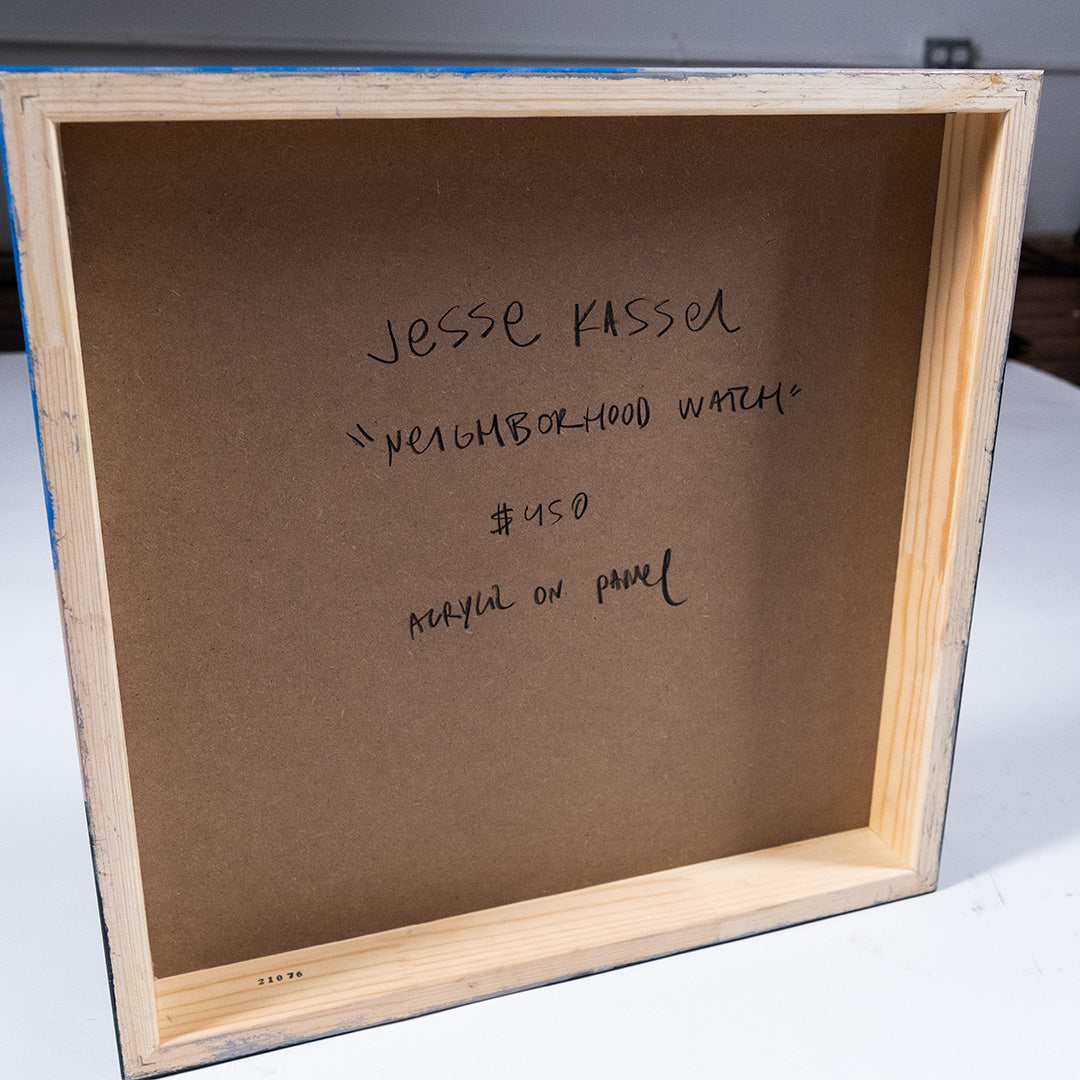 Jesse Kassel
"Neighborhood Watch"
$450
Acrylic on Panel
21076